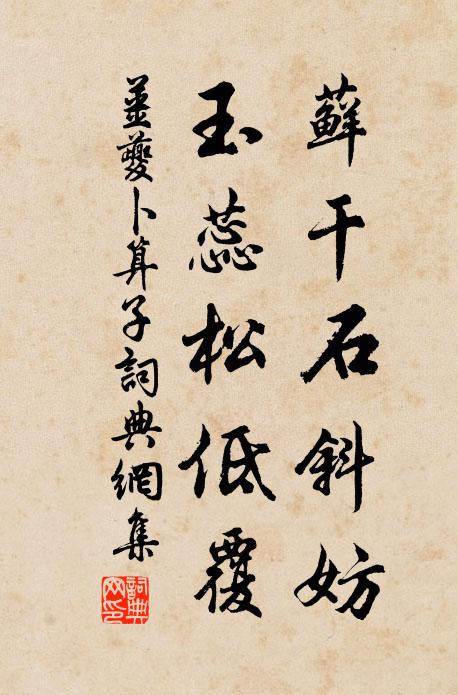 蘚干石斜妨
玉蕊松低覆
薑夔卜算子詞典網集
詞典网印